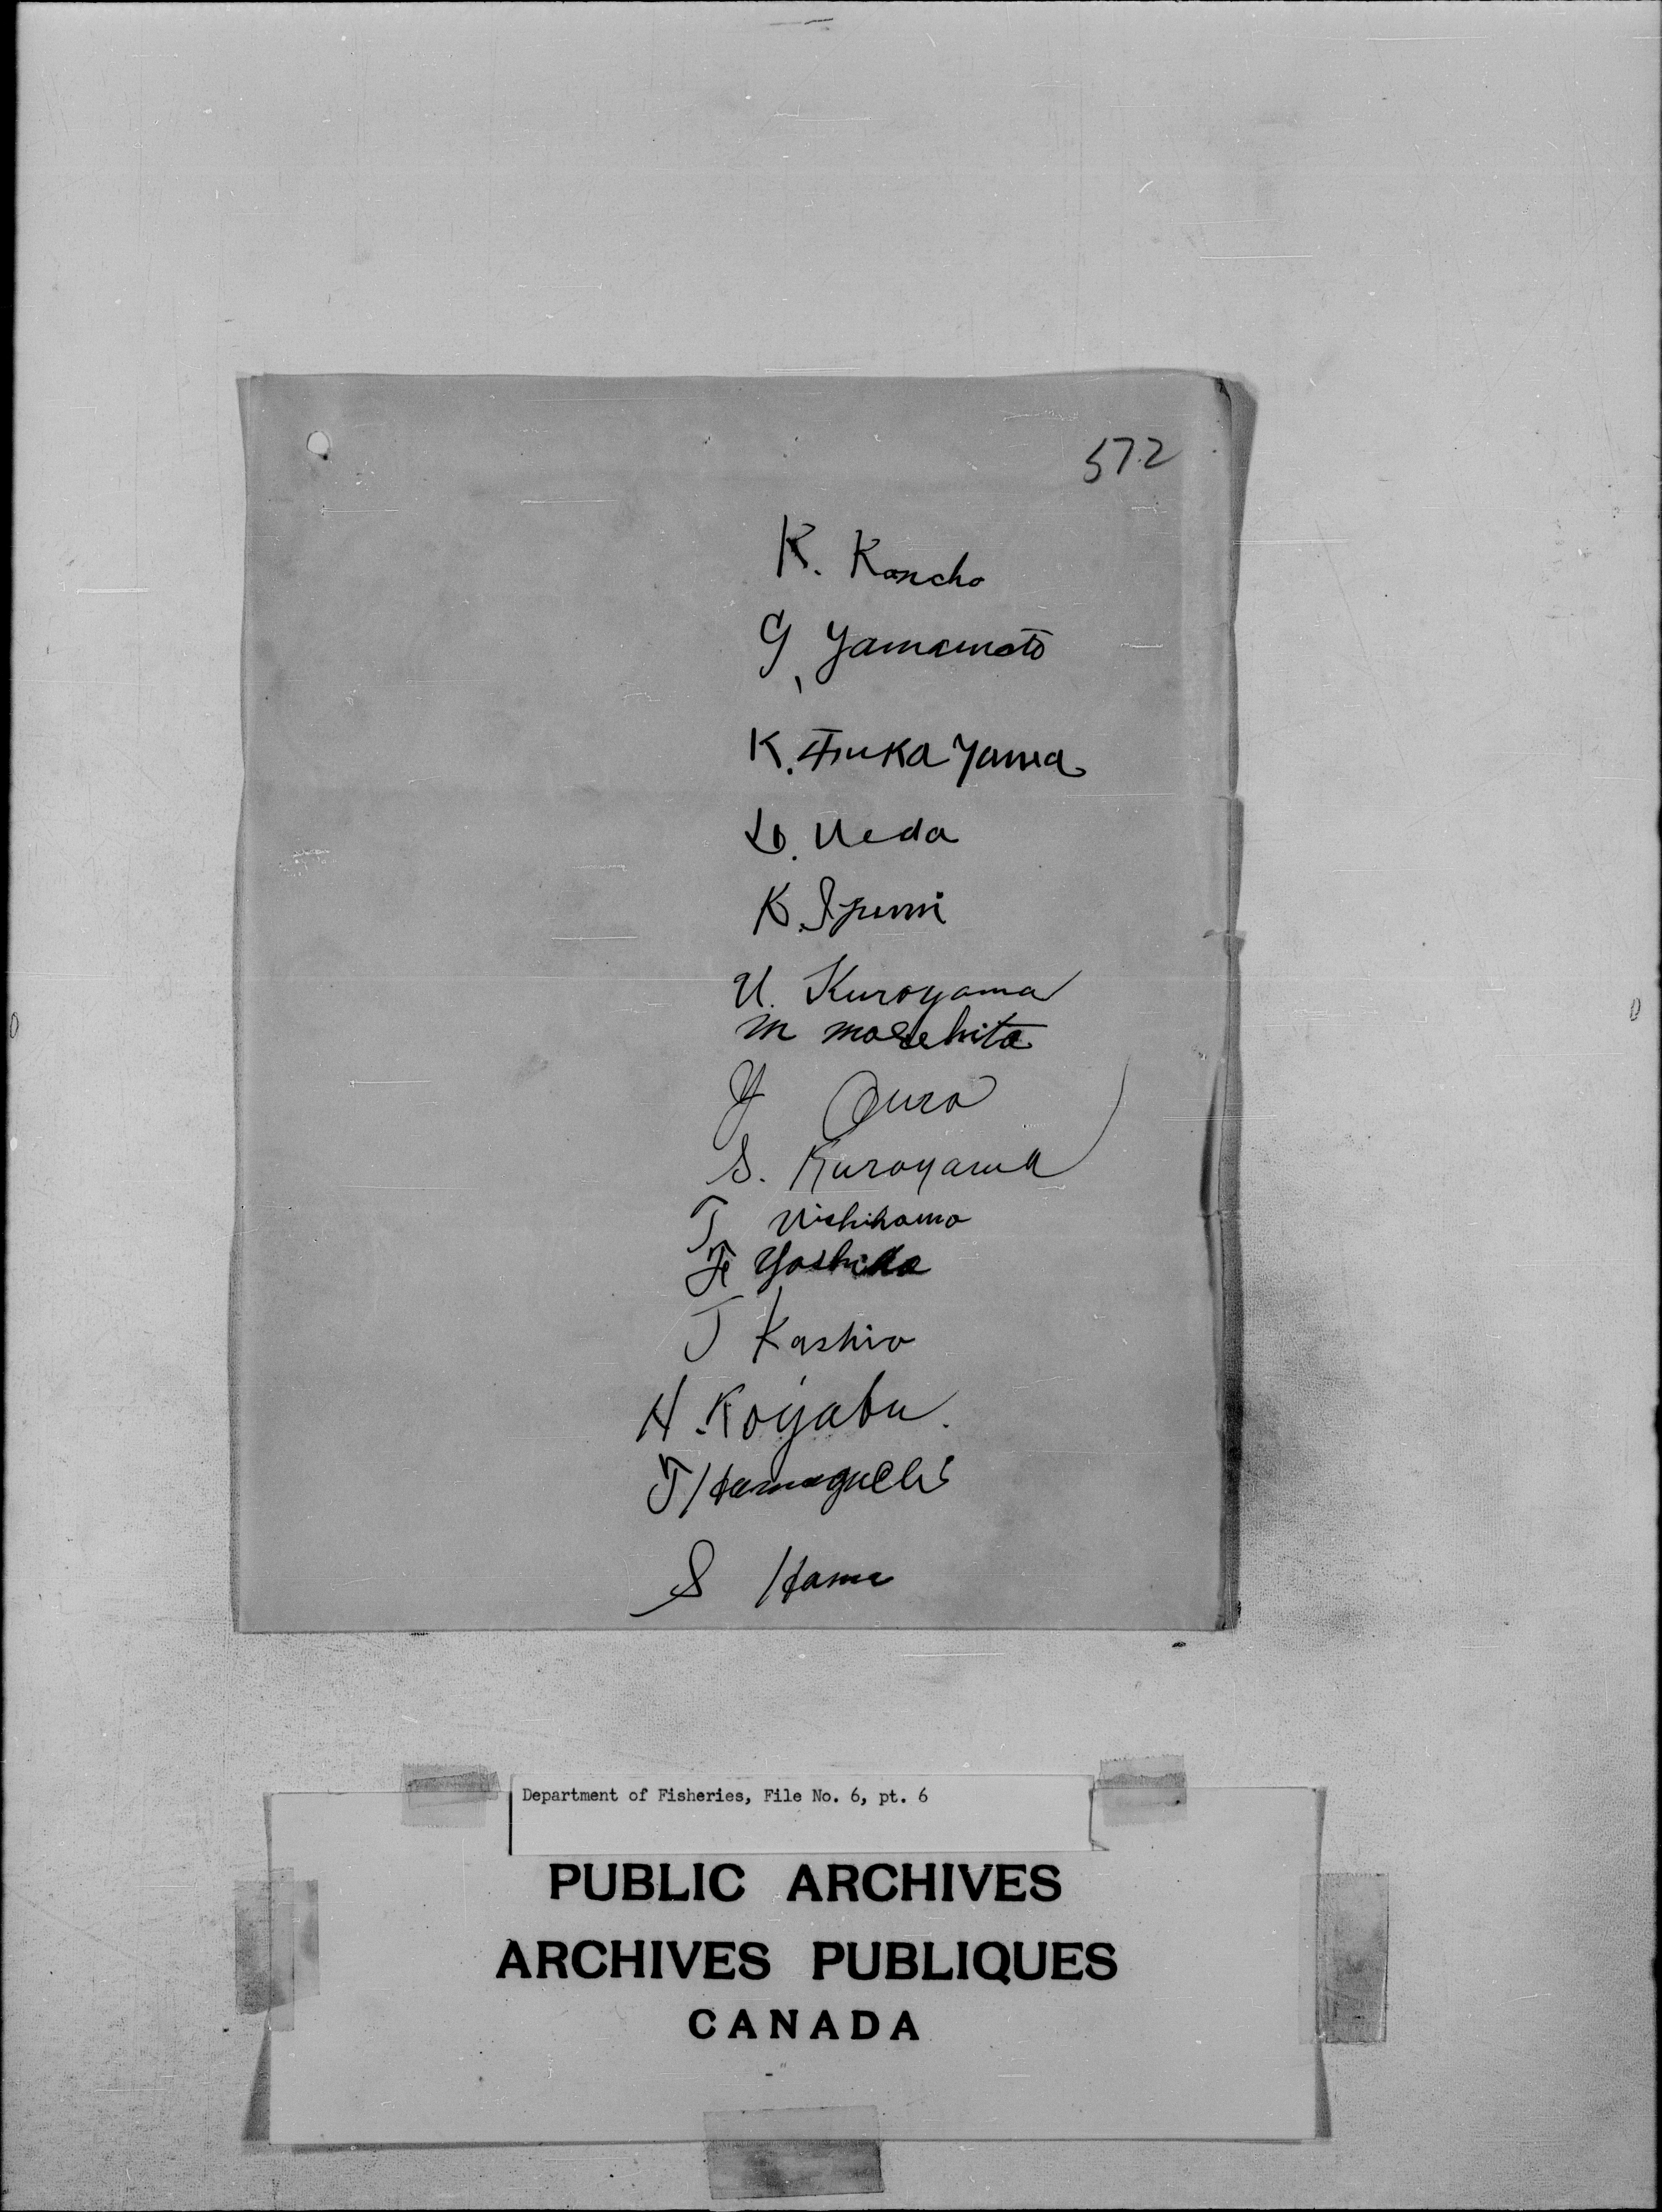 572
K. Koncho
G. Yamamoto
K. Tsuka Yama
D. Ueda
K. Izumi
U. Kuroyama
M Moreshita
Y Oura
S. Kuroyama
T Nishihama
F Yoshida
J Kashiro
H. Koyabu.
T Hamaguchi
S Hama
Department of Fisheries, File No. 6, pt. 6
PUBLIC ARCHIVES
ARCHIVES PUBLIQUES
CANADA